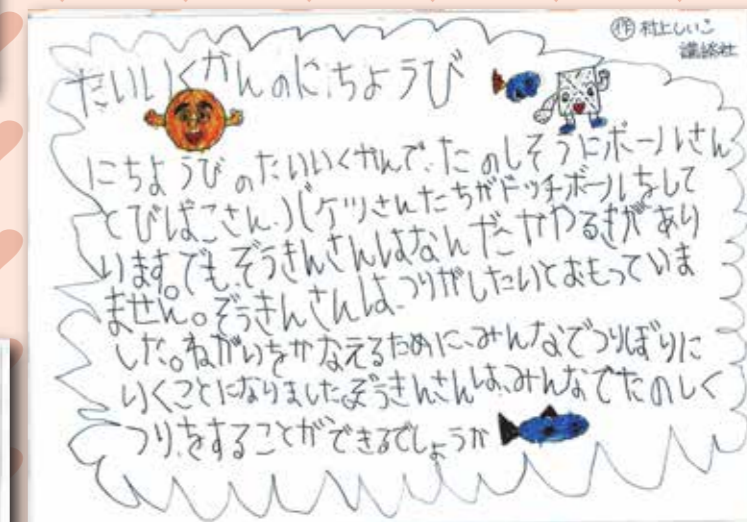 作 村上しいこ
講談社
たいいくかんのにちようび
にちようびのたいいくかんで、たのしそうにボールさん
とびばこさん、バケツさんたちがドッチボールをして
います。でも、ぞうきんさんはなんだかやるきがあり
ません。ぞうきんさんは、つりがしたいとおもっていま
した。ねがいをかなえるために、みんなでつりぼりに
いくことになりました。ぞうきんさんは、みんなでたのしく
つりをすることができるでしょうか